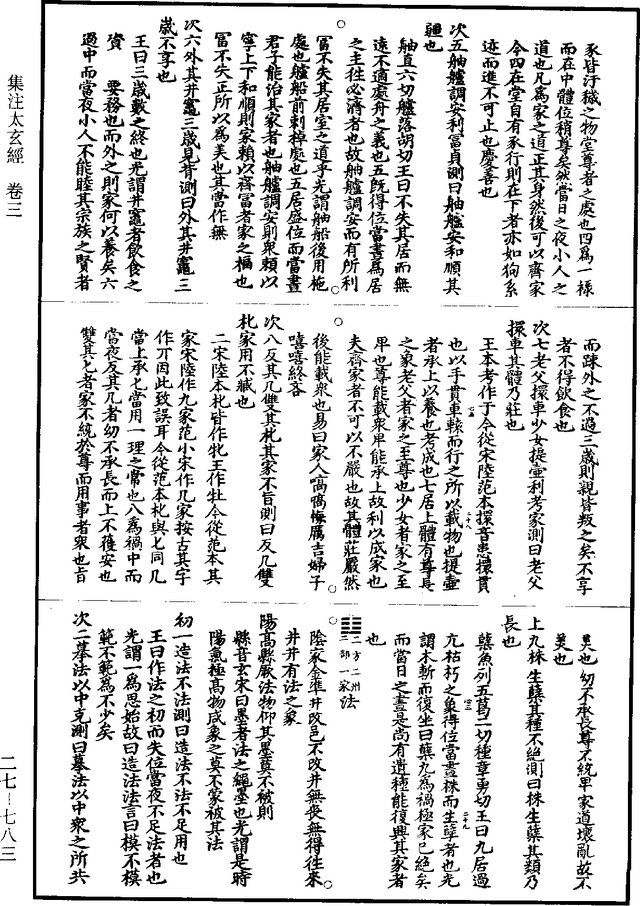 集注太玄經 卷三
二七—七八三
豕皆汙穢之物堂尊者之處也四爲一祿
而在中體位稍尊矣然當日之夜小人之
道也凡爲家之道正其身然後可以齊家
今四在堂自有豕行則在下者亦如狗系
迹而進不可止也慶善也
次五舳艫調安利富貞測曰舳艫安和順其
疆也
舳直六切艫落胡切王曰不失其居而無
遠不適處舟之義也五旣得位當晝爲居
之主往必濟者也故舳艫調安而有所利
富不失其居室之道乎光謂舳船後用柂
處也艫船前刺棹處也五居盛位而當晝
君子能治其家者也舳艫調安則衆賴以
寧上下和順則家賴以齊富者家之福也
富不失正所以爲美也其當作無
次六外其井竈三歲見背測曰外其井竈三
歲不享也
王曰三歲數之終也光謂井竈者飲食之
資 要務也而外之則家何以養矣六
過中而當夜小人不能睦其宗族之賢者
而踈外之不過三歲則親皆叛之矣不享
者不得飲食也
次七老父擐車少女提壷利考家測曰老父
擐車其體乃莊也
王本考作于今從宋陸范本擐音患擐貫
也以手貫車轅而行之所以載物也提壷
者承上以養也考成也七居上體有尊長
之象老父者家之至尊也少女者家之至
卑也尊能載衆卑能承上故利以成家也
夫齊家者不可以不嚴也故其體莊嚴然
後能載衆也易曰家人嗃嗃悔厲吉婦子
嘻嘻終吝
次八反其几雙其牝其家不旨測曰反几雙
牝家用不臧也
二宋陸本牝皆作牝王作牡今從范本其
家宋陸作九家范小宋作几家按古其字
作丌因此致誤耳今從范本牝與匕同几
當上承匕當用一理之常也八爲禍中而
當夜反其几者幼不承長而上不獲安也
雙其匕者家不統於尊而用事者衆也旨
美也幼不承長尊不統卑家道壞亂故不
美也
上九株生蘖其種不絶測曰株生蘖其類乃
長也
蘖魚列五葛二切種章勇切王曰九居過
亢枯朽之象得位當晝株而生孽者也光
謂木斬而復生曰蘖九爲禍極家已絶矣
而當日之晝是尚有遺種能復興其家者
也
三方二州三部一家法
陰家金準井改邑不改井無喪無得往來
井井有法之象
陽高縣厥法物仰其墨莫不被則
縣音玄宋曰墨者法之繩墨也光謂是時
陽氣極高物咸象之莫不蒙被其法
初一造法不法測曰造法不法不足用也
王曰作法之初而失位當夜不足法者也
光謂一爲思始故曰造法法言曰模不模
範不範爲不少矣
次二摹法以中克測曰摹法以中衆之所共